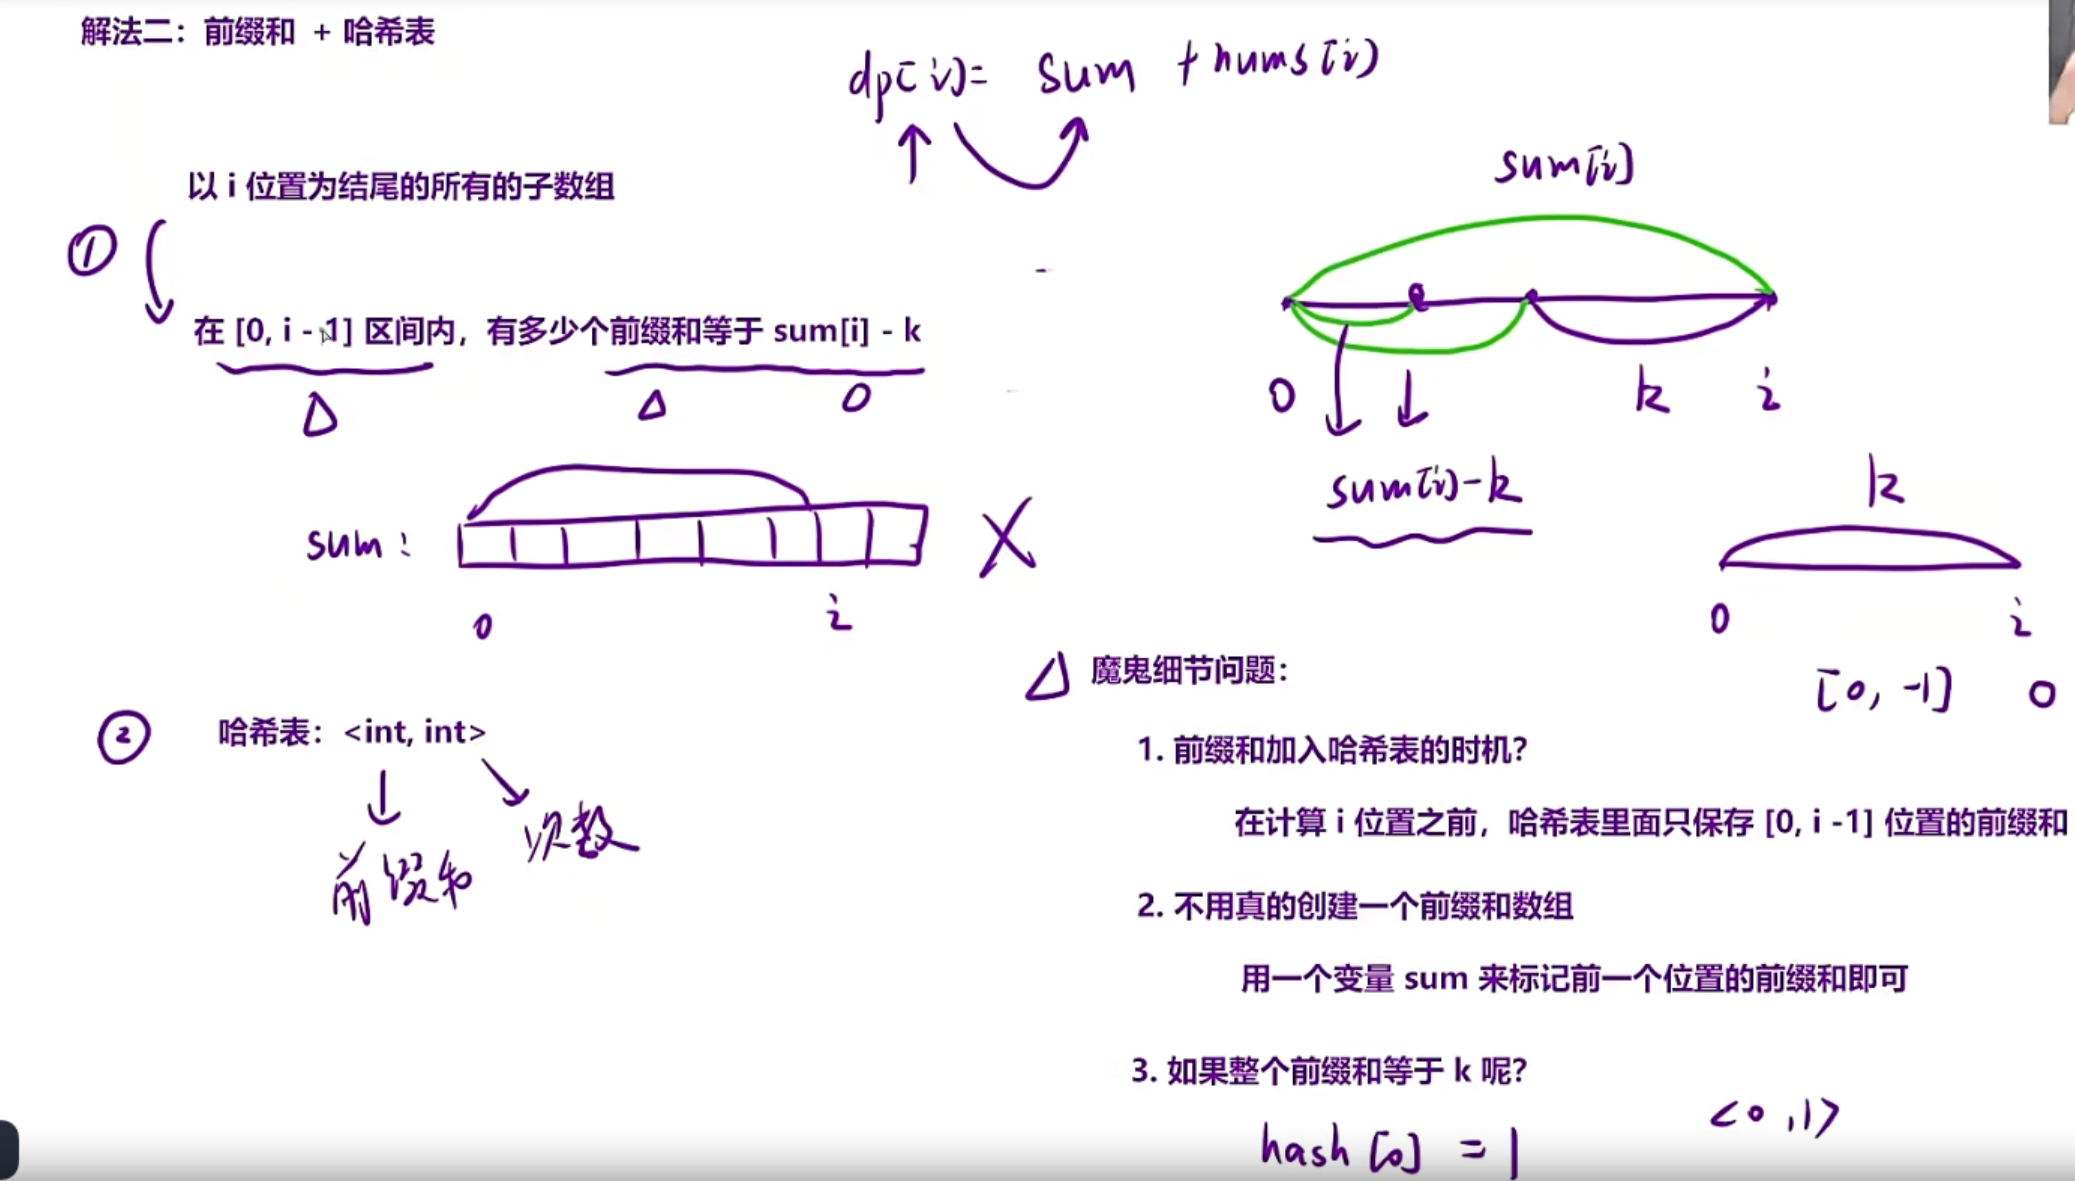 解法二：前缀和 + 哈希表
dp[i]= sum + nums[i]
以 i 位置为结尾的所有的子数组
①
在 [0, i - 1] 区间内，有多少个前缀和等于 sum[i] - k
sum:
0 i
sum[i]
0 k i
sum[i]-k
k
0 i
[0, -1] 0
② 哈希表：<int, int>
前缀和 次数
魔鬼细节问题：
1. 前缀和加入哈希表的时机？
在计算 i 位置之前，哈希表里面只保存 [0, i -1] 位置的前缀和
2. 不用真的创建一个前缀和数组
用一个变量 sum 来标记前一个位置的前缀和即可
3. 如果整个前缀和等于 k 呢？
hash[0] = 1 <0,1>